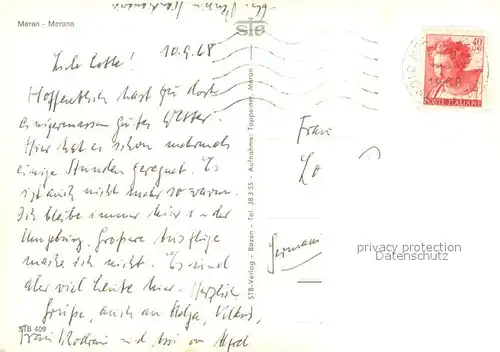 Meran - Merano
STB
10.9.68
Liebe Lotte!
Hoffentlich hast Du dort
einigermassen gutes Wetter.
Hier hat es schon mehrmals
einige Stunden geregnet. Es
ist auch nicht mehr so warm.
Ich bleibe immer hier in der
Umgebung. Grössere Ausflüge
mache ich nicht. Es sind
aber viel Leute hier. Herzlich
Grüße, auch an Helga, Volker,
Frau und von Alfred
STB 409
STB-Verlag - Bozen - Tel. 38 3 55 - Aufnahme: Tappeiner, Meran
40
POSTE ITALIANE
Frau
Lo
Germania
privacy protection
Datenschutz